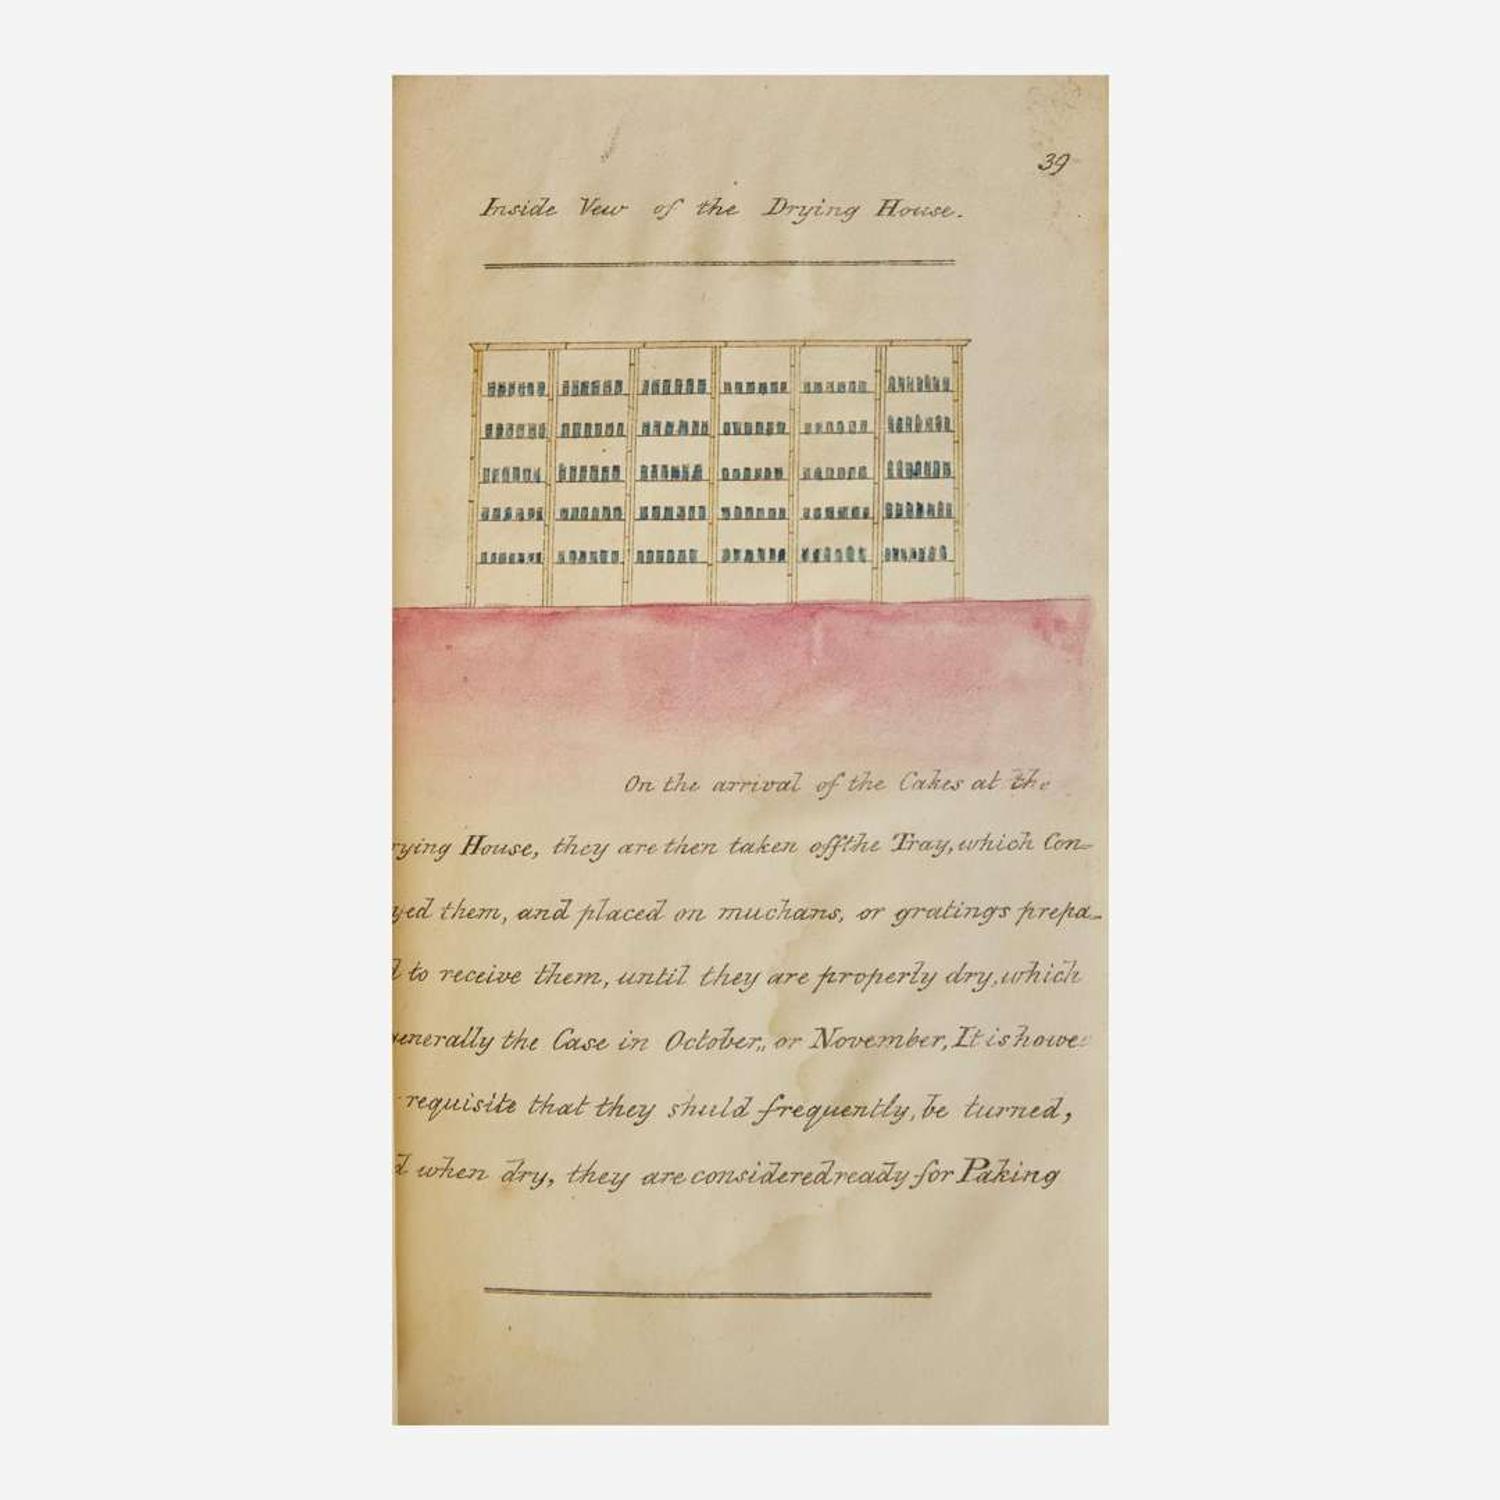 39
Inside Vew of the Drying House.
On the arrival of the Cakes at the
rying House, they are then taken offthe Tray, which Con=
yed them, and placed on muchans, or gratings prepa=
d to receive them, until they are properly dry, which
generally the Case in October,, or November, It is howe
requisite that they shuld frequently, be turned,
d when dry, they are considered ready for Paking